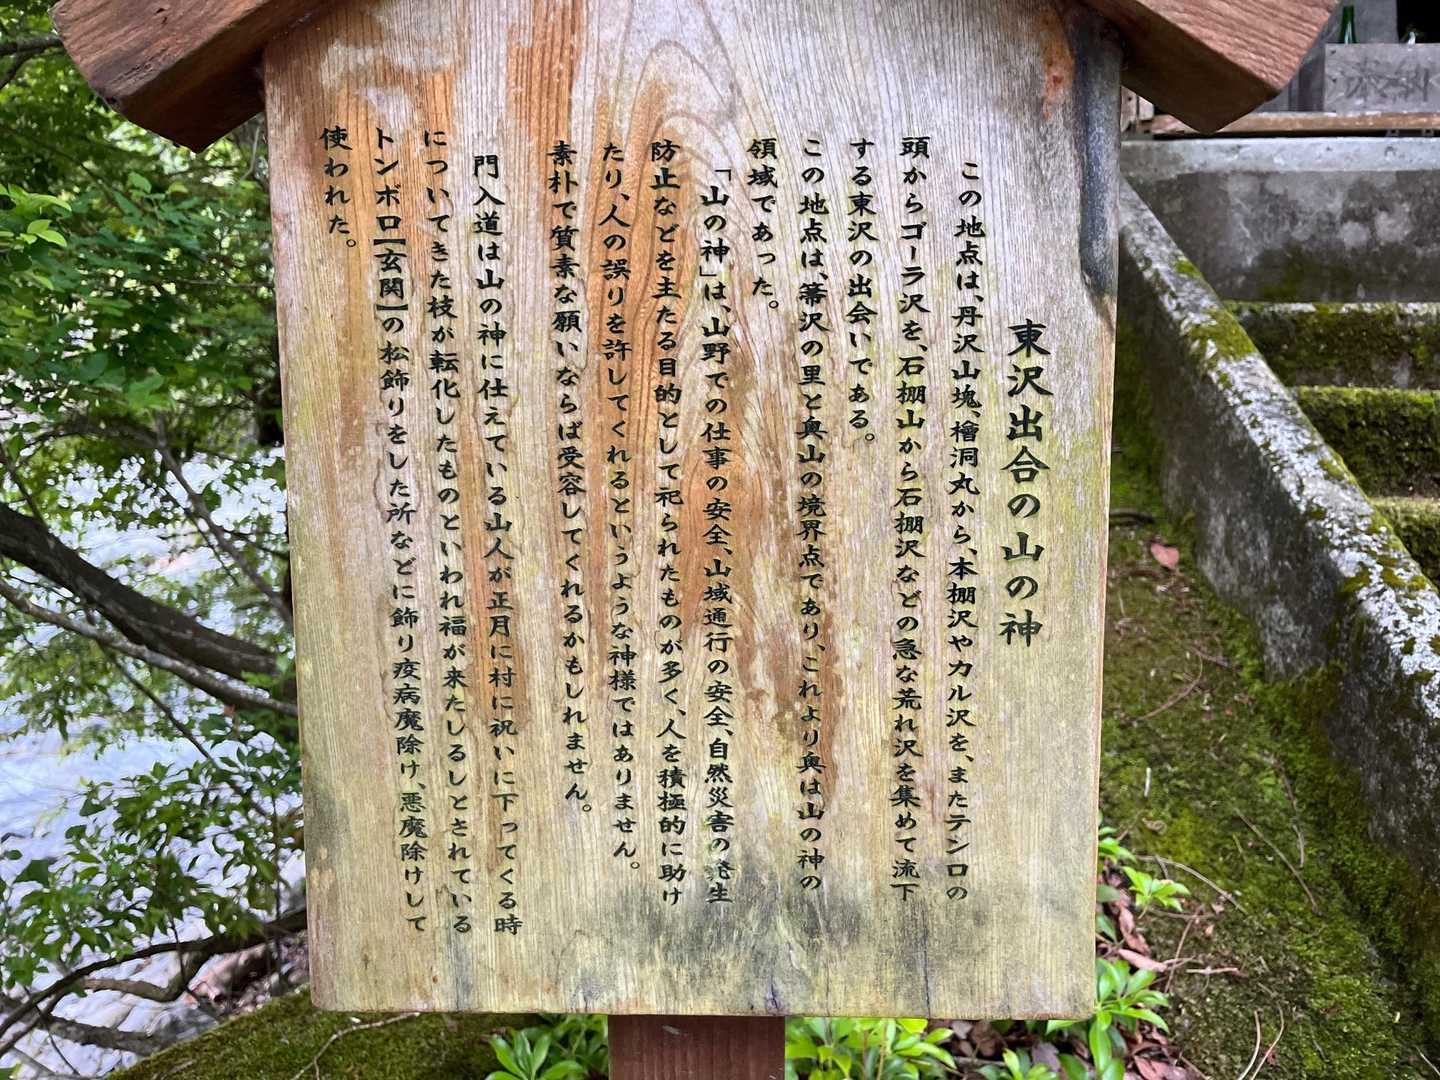 東沢出合の山の神
この地点は、丹沢山塊、檜洞丸から、本棚沢やカル沢を、またテンロの
頭からゴーラ沢を、石棚山から石棚沢などの急な荒れ沢を集めて流下
する東沢の出会いである。
この地点は、箒沢の里と奥山の境界点であり、これより奥は山の神の
領域であった。
「山の神」は、山野での仕事の安全、山域通行の安全、自然災害の発生
防止などを主たる目的として祀られたものが多く、人を積極的に助け
たり、人の誤りを許してくれるというような神様ではありません。
素朴で質素な願いならば受容してくれるかもしれません。
門入道は山の神に仕えている山人が正月に村に祝いに下ってくる時
についてきた枝が転化したものといわれ福が来たしるしとされている
トンボロ【玄関】の松飾りをした所などに飾り疫病魔除け、悪魔除けして
使われた。